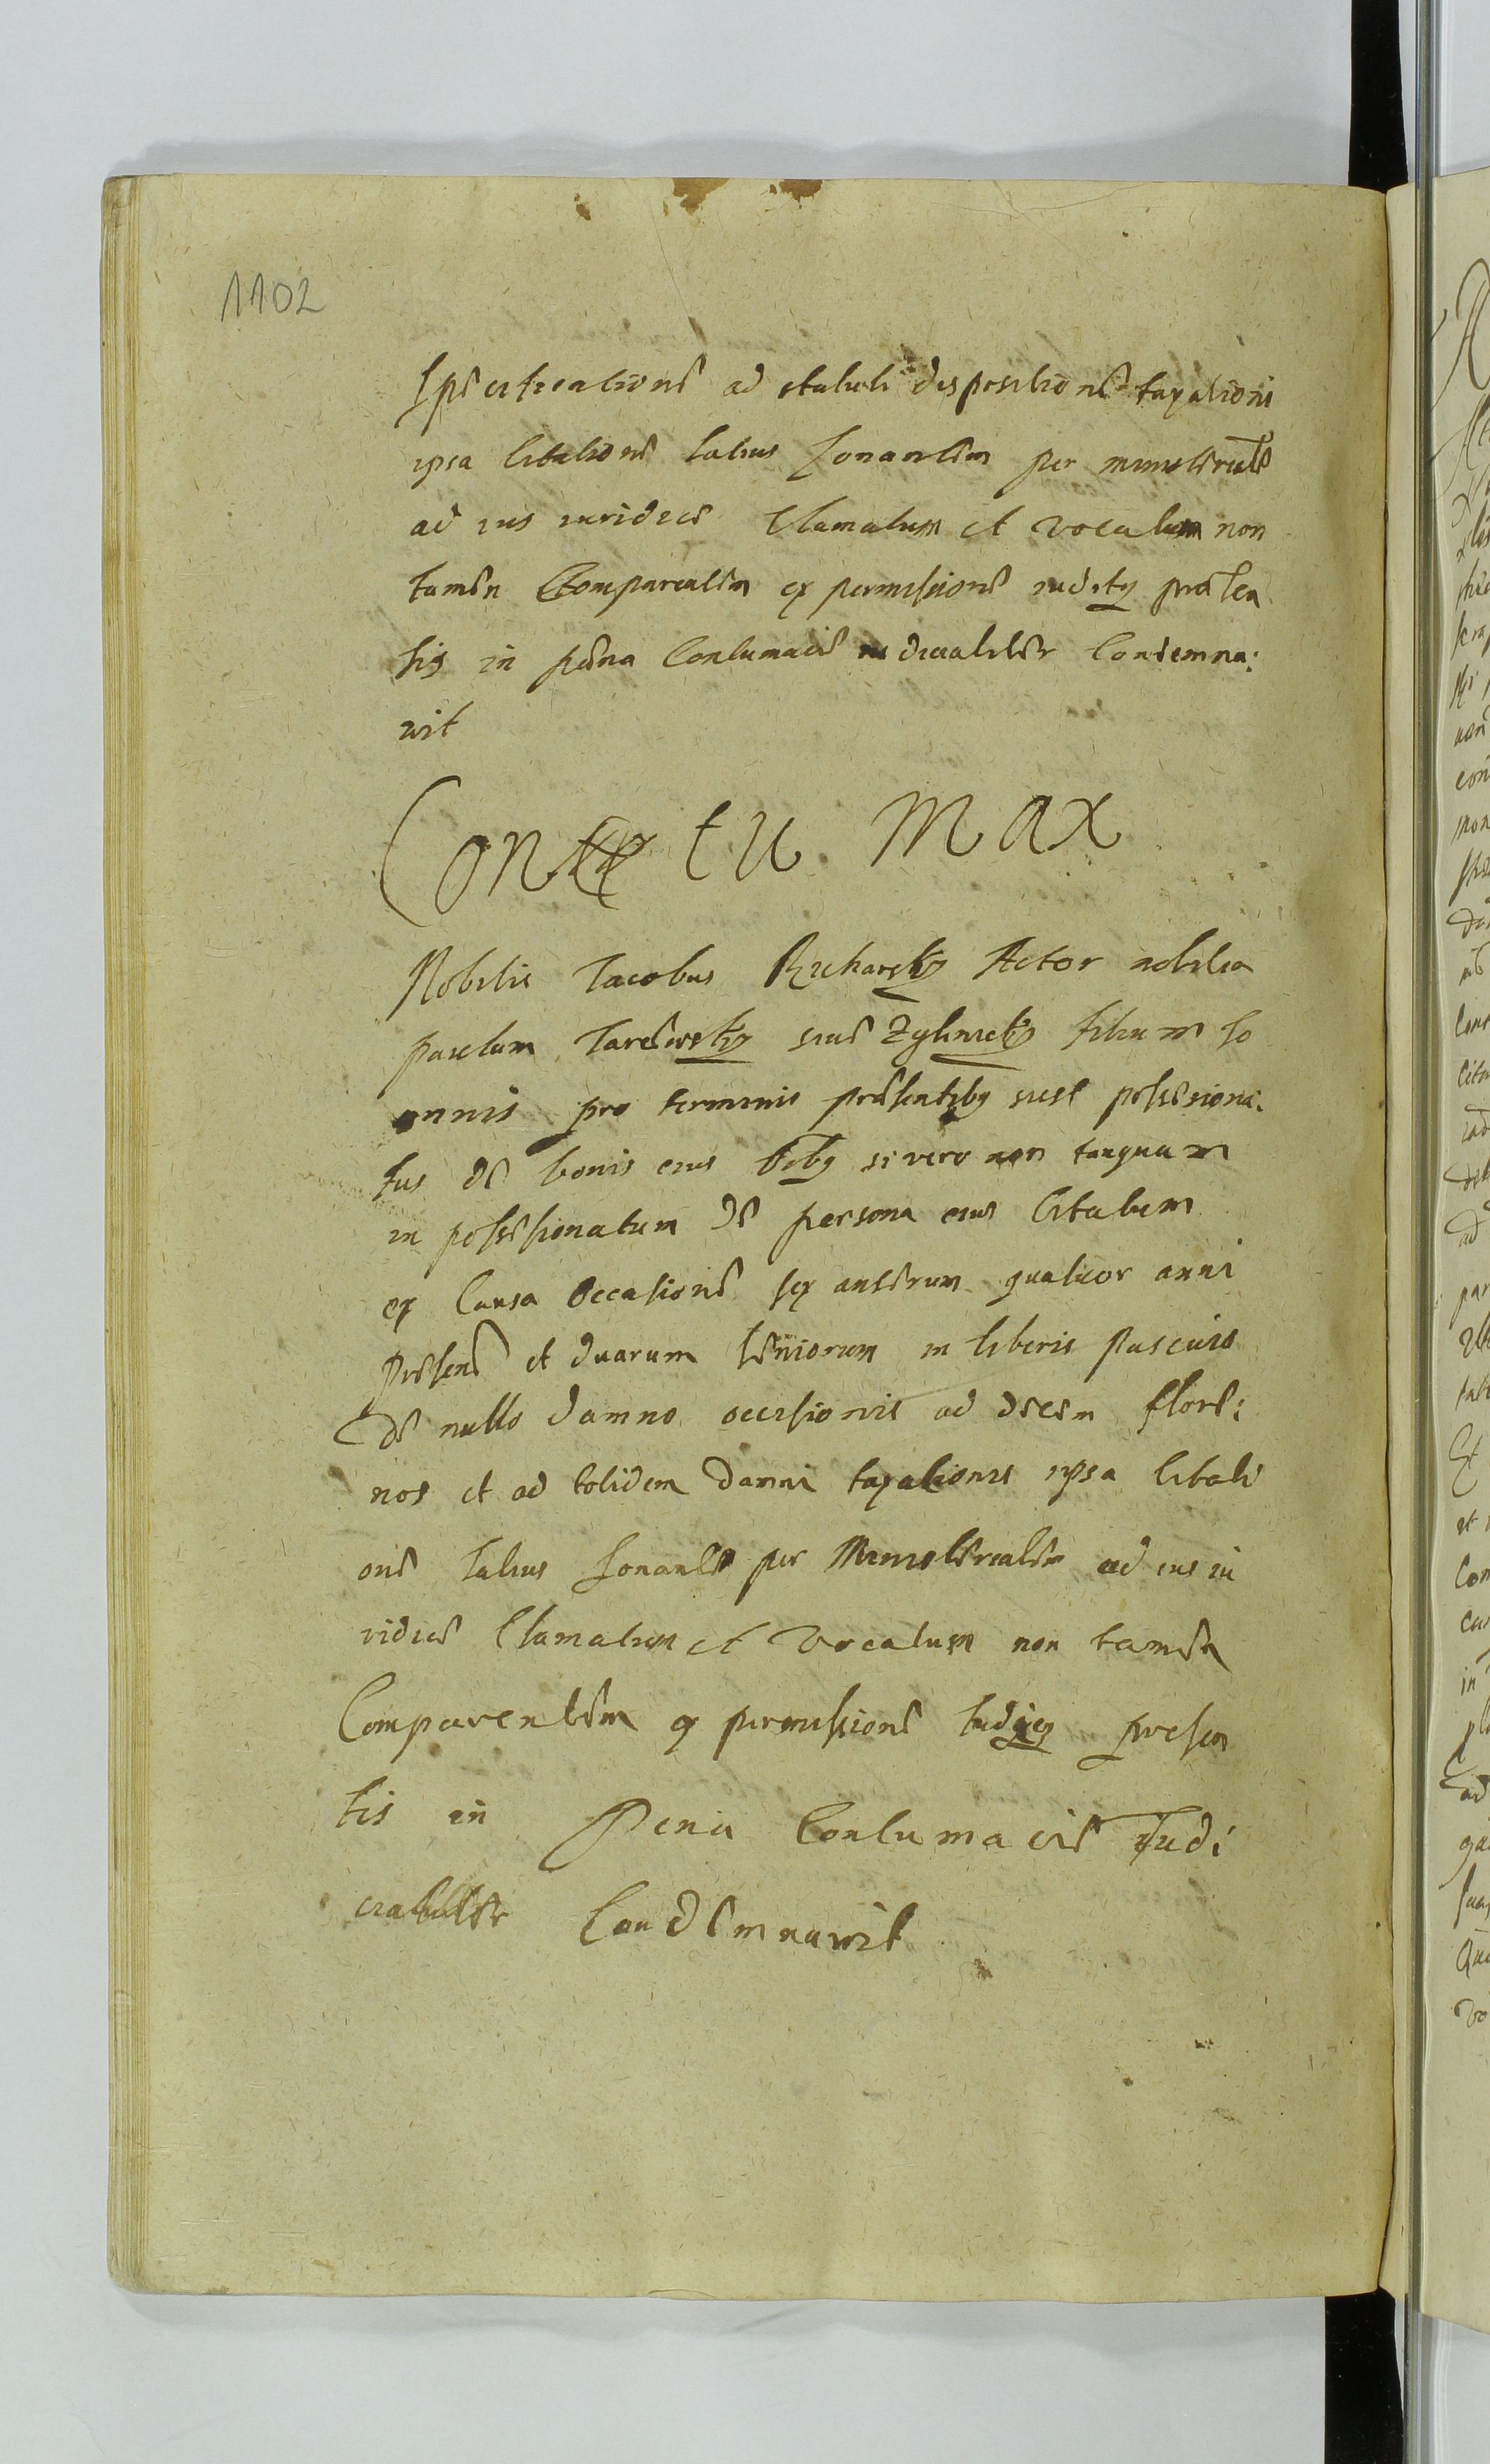 1102
specificatione ad statuti dispositione taxationi
ipsa citatione latius sonantem per ministeriale
ad ius iuridice clamatum et vocatum non
tamen Comparentem ex permissione iudicÿ presen
tis in pena Contumacie iudicialiter Condemna:
vit
Contumax
Nobilis Iacobus Rucharskÿ Actor nobilem
paulum Tarewskÿ siue Zÿlinskÿ filium Io
annis pro terminis presentibꝫ si est possessiona:
tus de bonis eius oibꝫ si vero non tanquam
in possessionatum de persona eius Citatum
ex Causa occasione sex anserum quatuor anni
presens et duarum seniorum in liberis pascuis
de nullo damno occisionis ad decem flore:
nos et ad totidem damni taxationis ipsa Citati
one latius sonante per Ministerialem ad ius iu
ridice Clamatum et vocatum non tamen
Comparentem ex permissione Iudicÿ presen
tis in pena Contumacie Iudi
cialiter Condemnavit